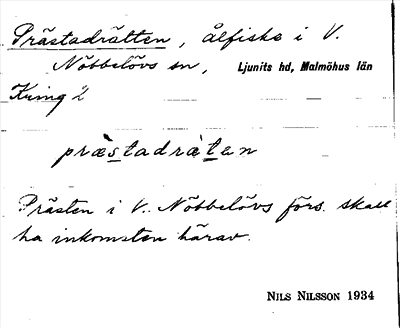 Prästadrätten, ålfiske i V.
Nöbbelövs sn, Ljunits hd, Malmöhus län
Kring 2
præstadrætæn
Prästen i V. Nöbbelövs förs. skall
ha inkomsten härav.
NILS NILSSON 1934